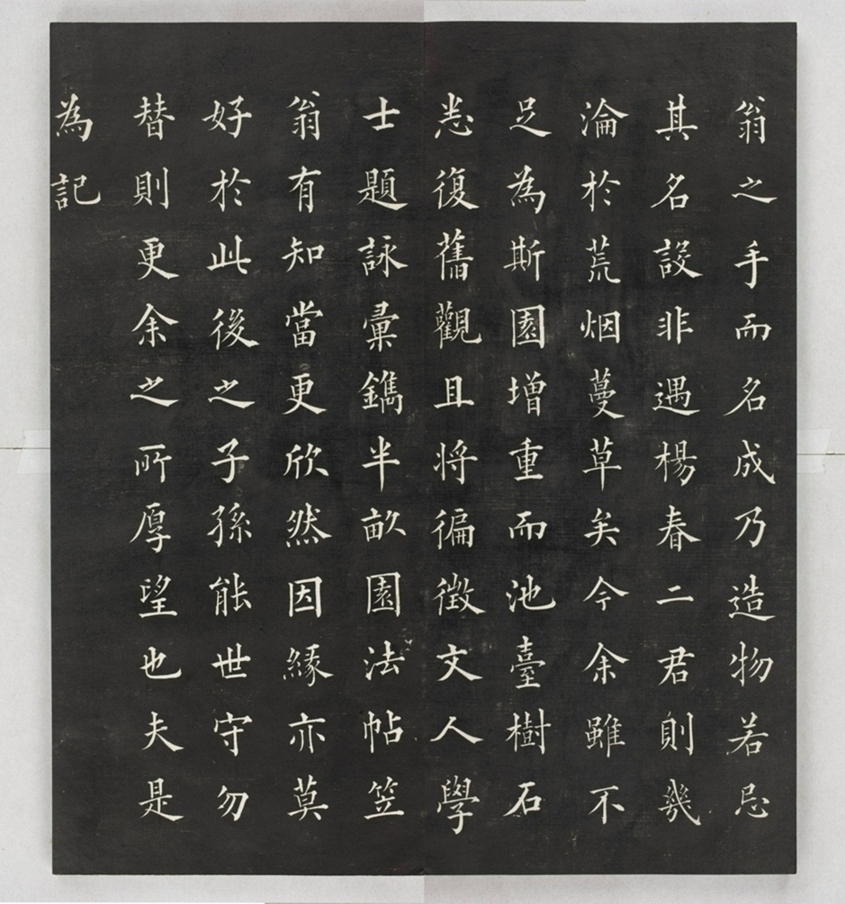 翁之手而名成乃造物若忌
其名設非遇楊春二君則幾
淪於荒烟蔓草矣今余雖不
足為斯園增重而池臺樹石
悉復舊觀且将徧徴文人學
士題詠彙鐫半畝園法帖笠
翁有知當更欣然因緣亦莫
好於此後之子孫能世守勿
替則更余之所厚望也夫是
為記